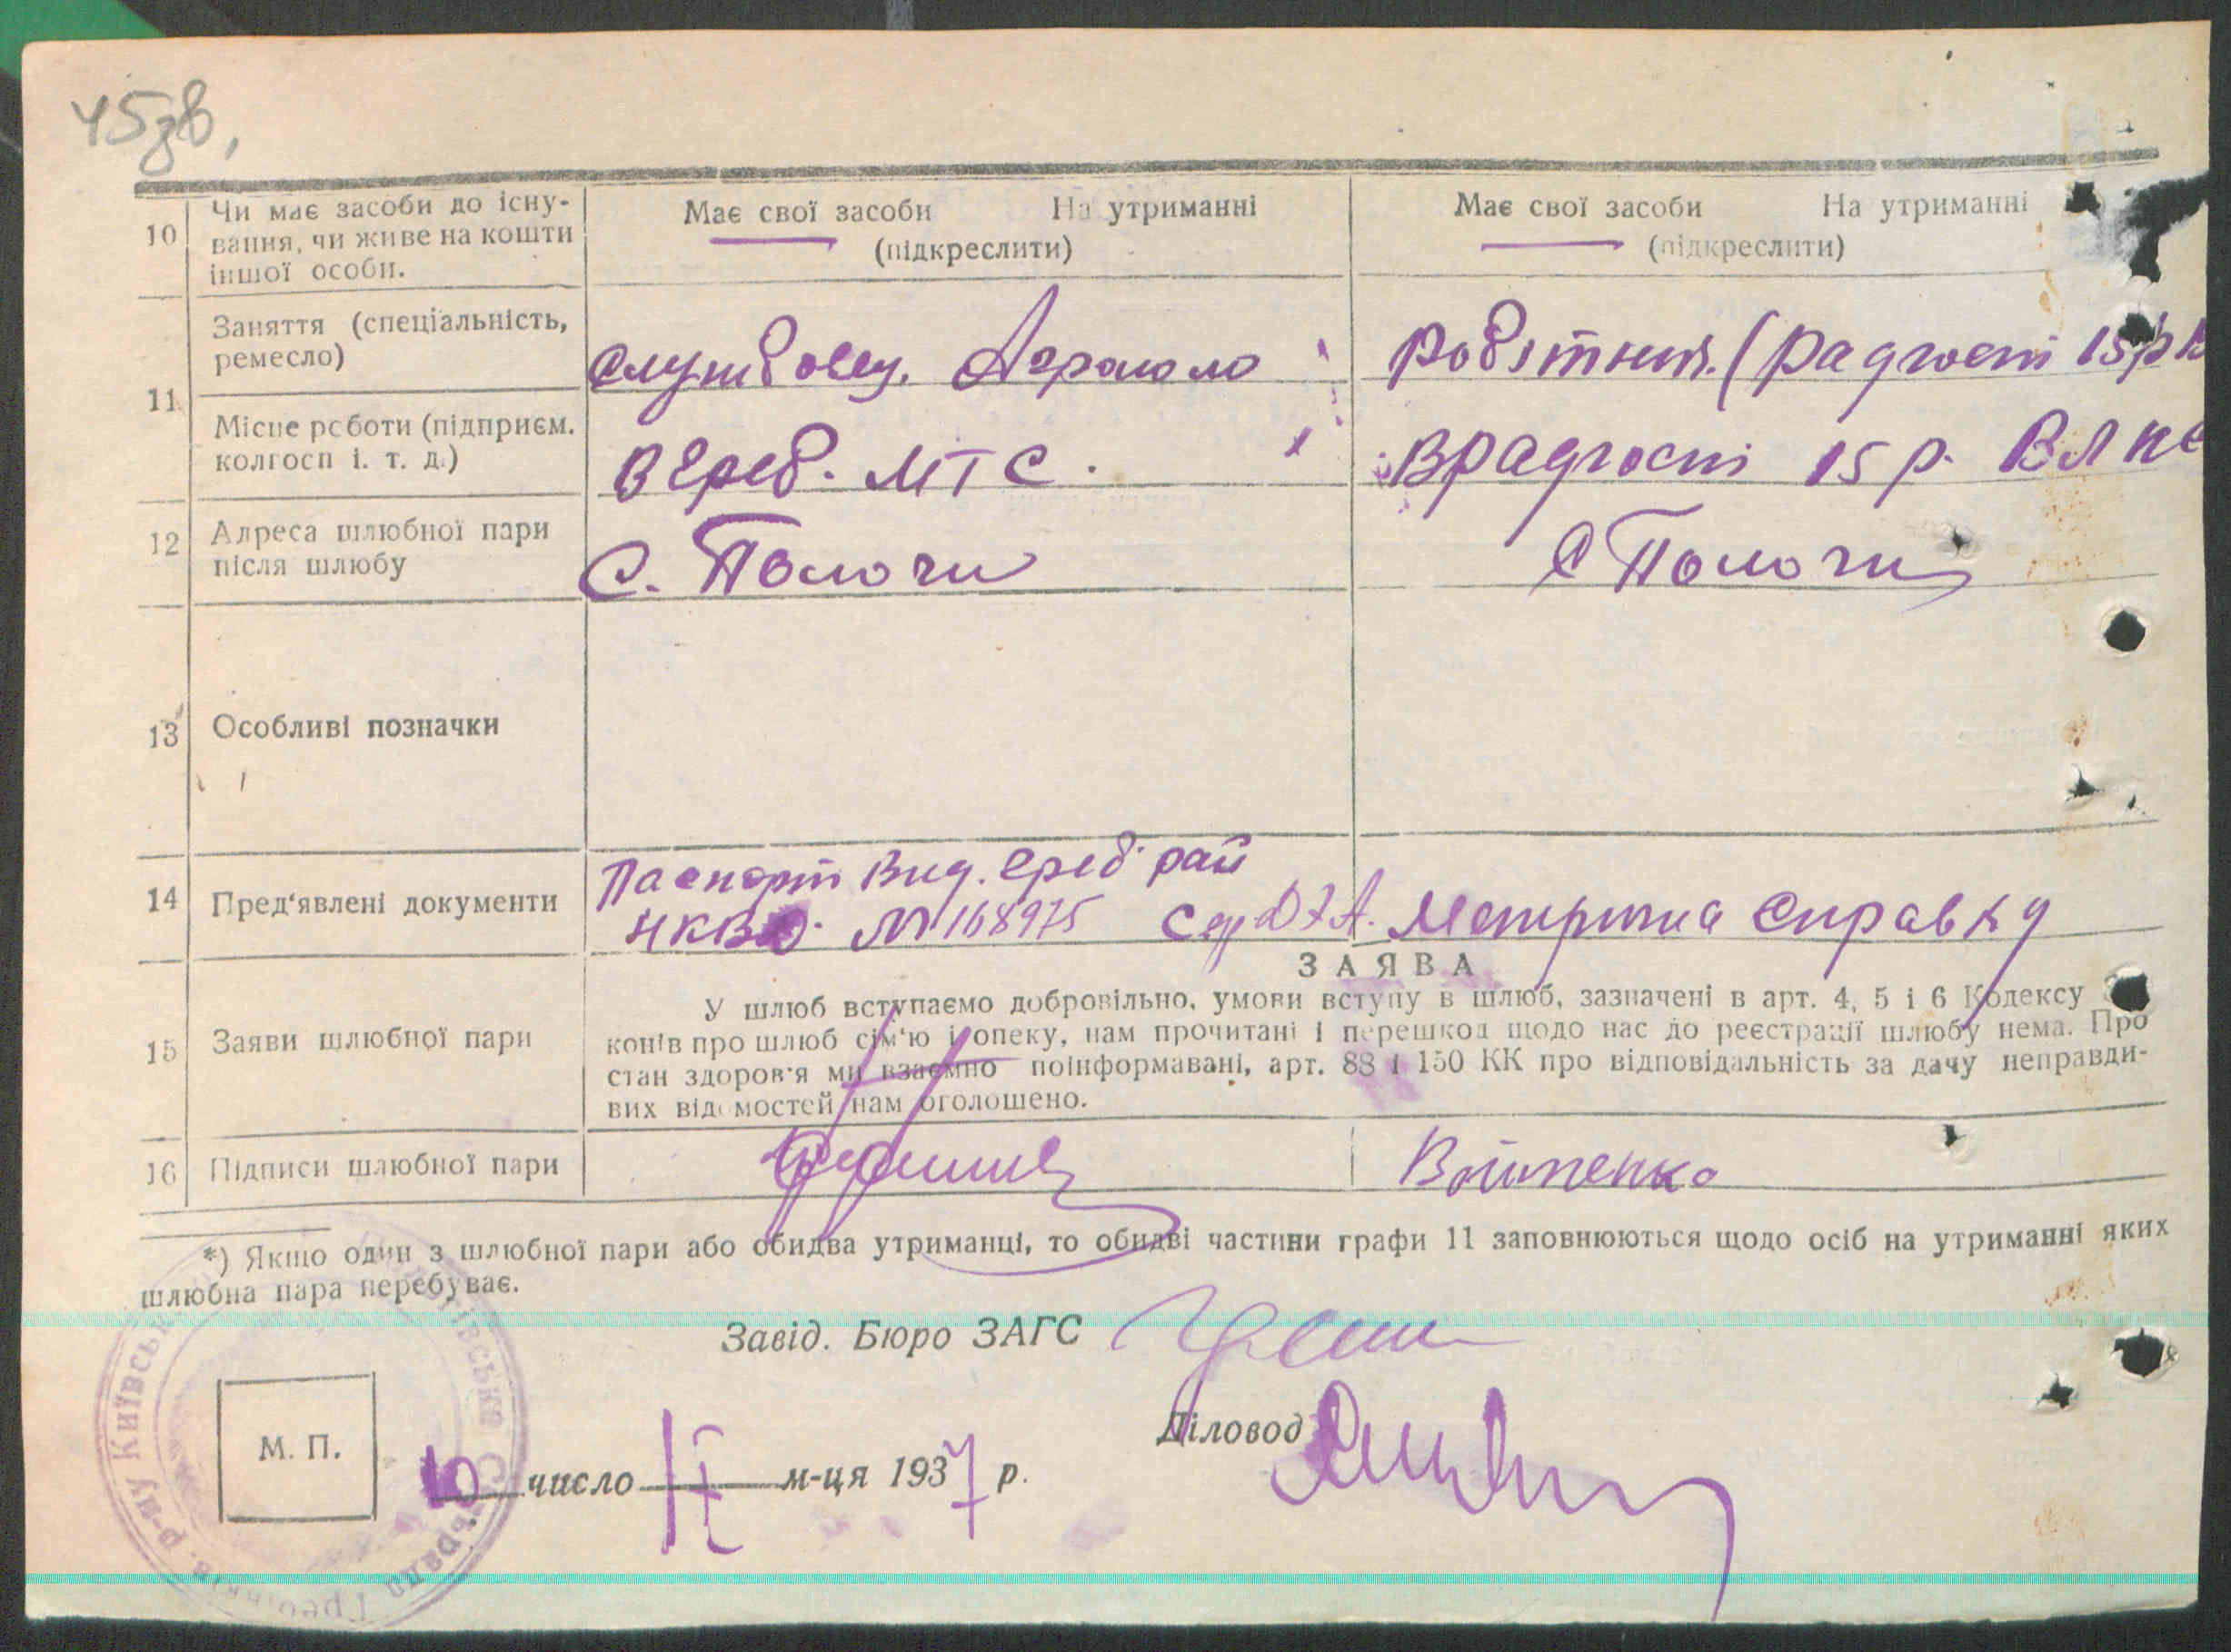 45зв,
10 Чи має засоби до існу-
вання, чи живе на кошти
іншої особи.
Має свої засоби На утриманні
(підкреслити)
Має свої засоби На утриманні
(підкреслити)
11 Заняття (спеціальність,
ремесло)
Службовец. Агроном
Робітниця. (радгосп 15р
Місце роботи (підприєм.
колгосп і. т. д.)
В Греб. МТС.
В радгоспі 15 р. ВЛКС
12 Адреса шлюбної пари
після шлюбу
С. Пологи
С Пологи
13 Особливі позначки
14 Пред'явлені документи
Паспорт Вид. Греб рай
НКВС. № 168975
Метрична Справка
15 Заяви шлюбної пари
ЗАЯВА
У шлюб вступаємо добровільно, умови вступу в шлюб, зазначені в арт. 4, 5 і 6 Кодексу
конів про шлюб сім'ю і опеку, нам прочитані і перешкод щодо нас до реєстрації шлюбу нема. Про
стан здоров'я ми взаємно поінформавані, арт. 88 і 150 КК про відповідальність за дачу неправди-
вих відомостей нам оголошено.
16 Підписи шлюбної пари
Войтенко
*) Якщо один з шлюбної пари або обидва утриманці, то обидві частини графи 11 заповнюються щодо осіб на утриманні яких
шлюбна пара перебуває.
Завід. Бюро ЗАГС
Діловод
М. П.
10 число ІХ м-ця 1937 р.
р-ну Київськ